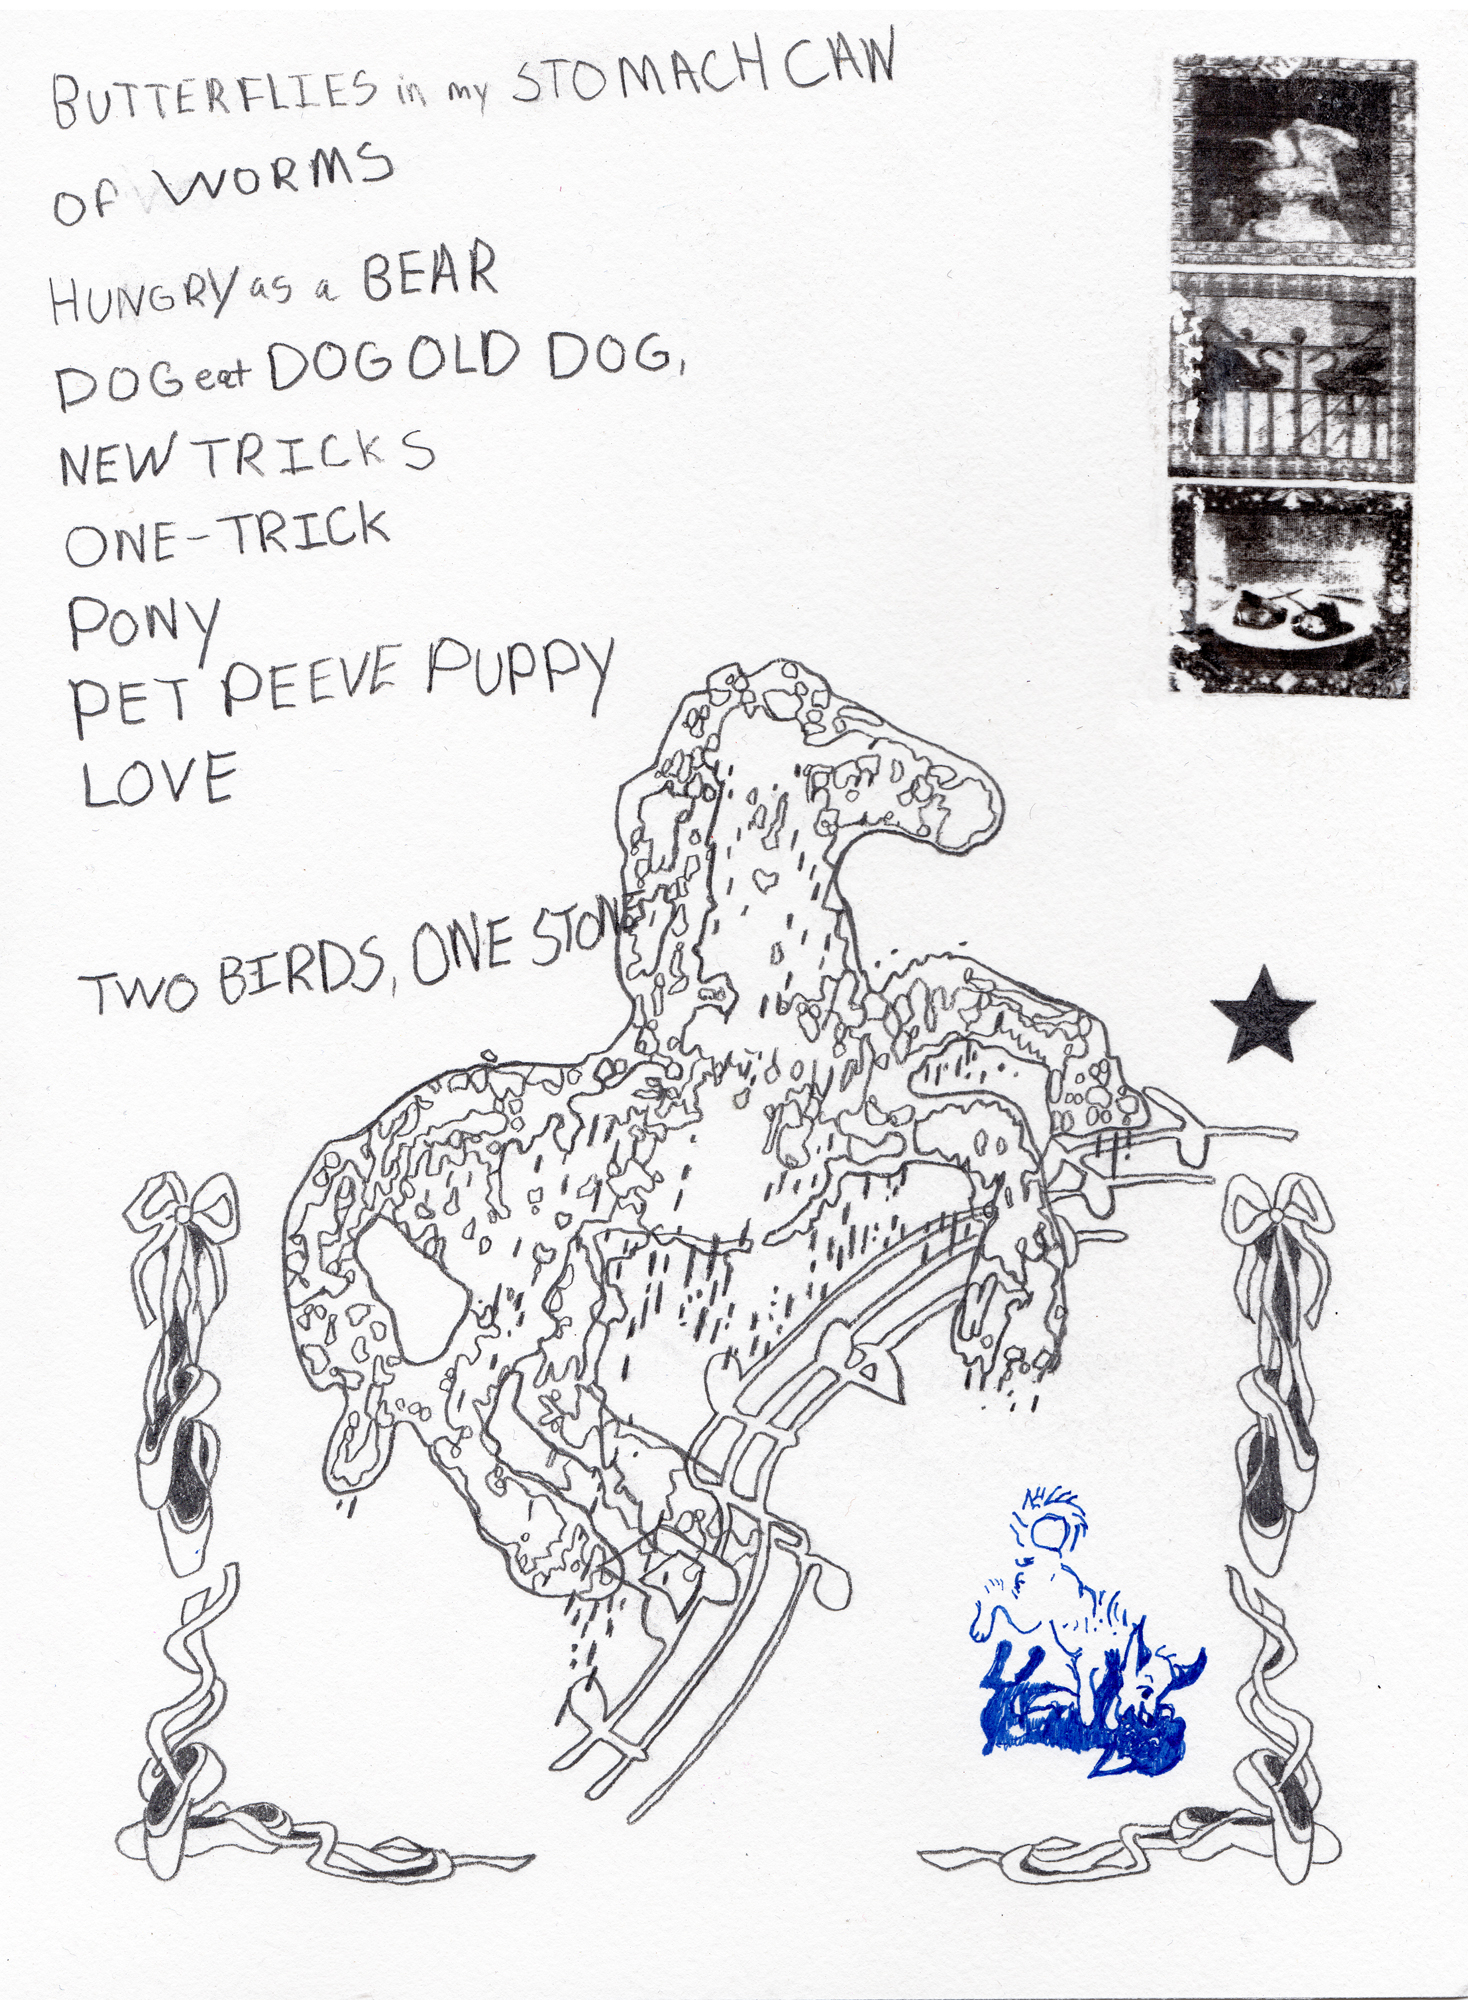 BUTTERFLIES in my STOMACH CAN
OF WORMS
HUNGRY as a BEAR
DOG eat DOG OLD DOG,
NEW TRICKS
ONE-TRICK
PONY
PET PEEVE PUPPY
LOVE
TWO BIRDS, ONE STONE